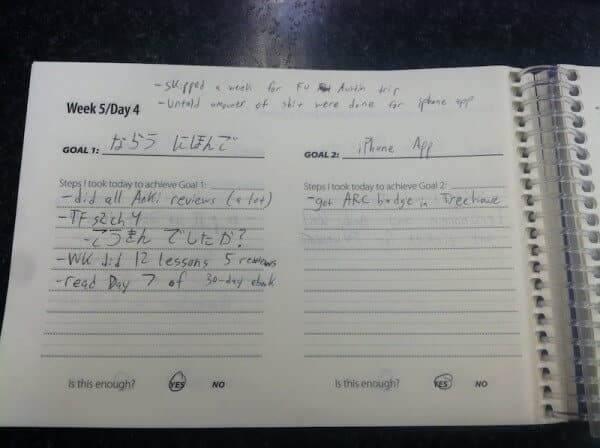 - Skipped a week for FU Austin trip
Week 5/Day 4
- Untold amounts of shit were done for iphone app
GOAL 1: ならう にほんで
Steps I took today to achieve Goal 1:
- did all Anki reviews (a lot)
- TF S2 ch 4
- でしたか?
- WK did 12 lessons 5 reviews
- read Day 7 of 30-day ebook
Is this enough? YES NO
GOAL 2: iPhone App
Steps I took today to achieve Goal 2:
- got ARC badge in Treehouse
Is this enough? YES NO